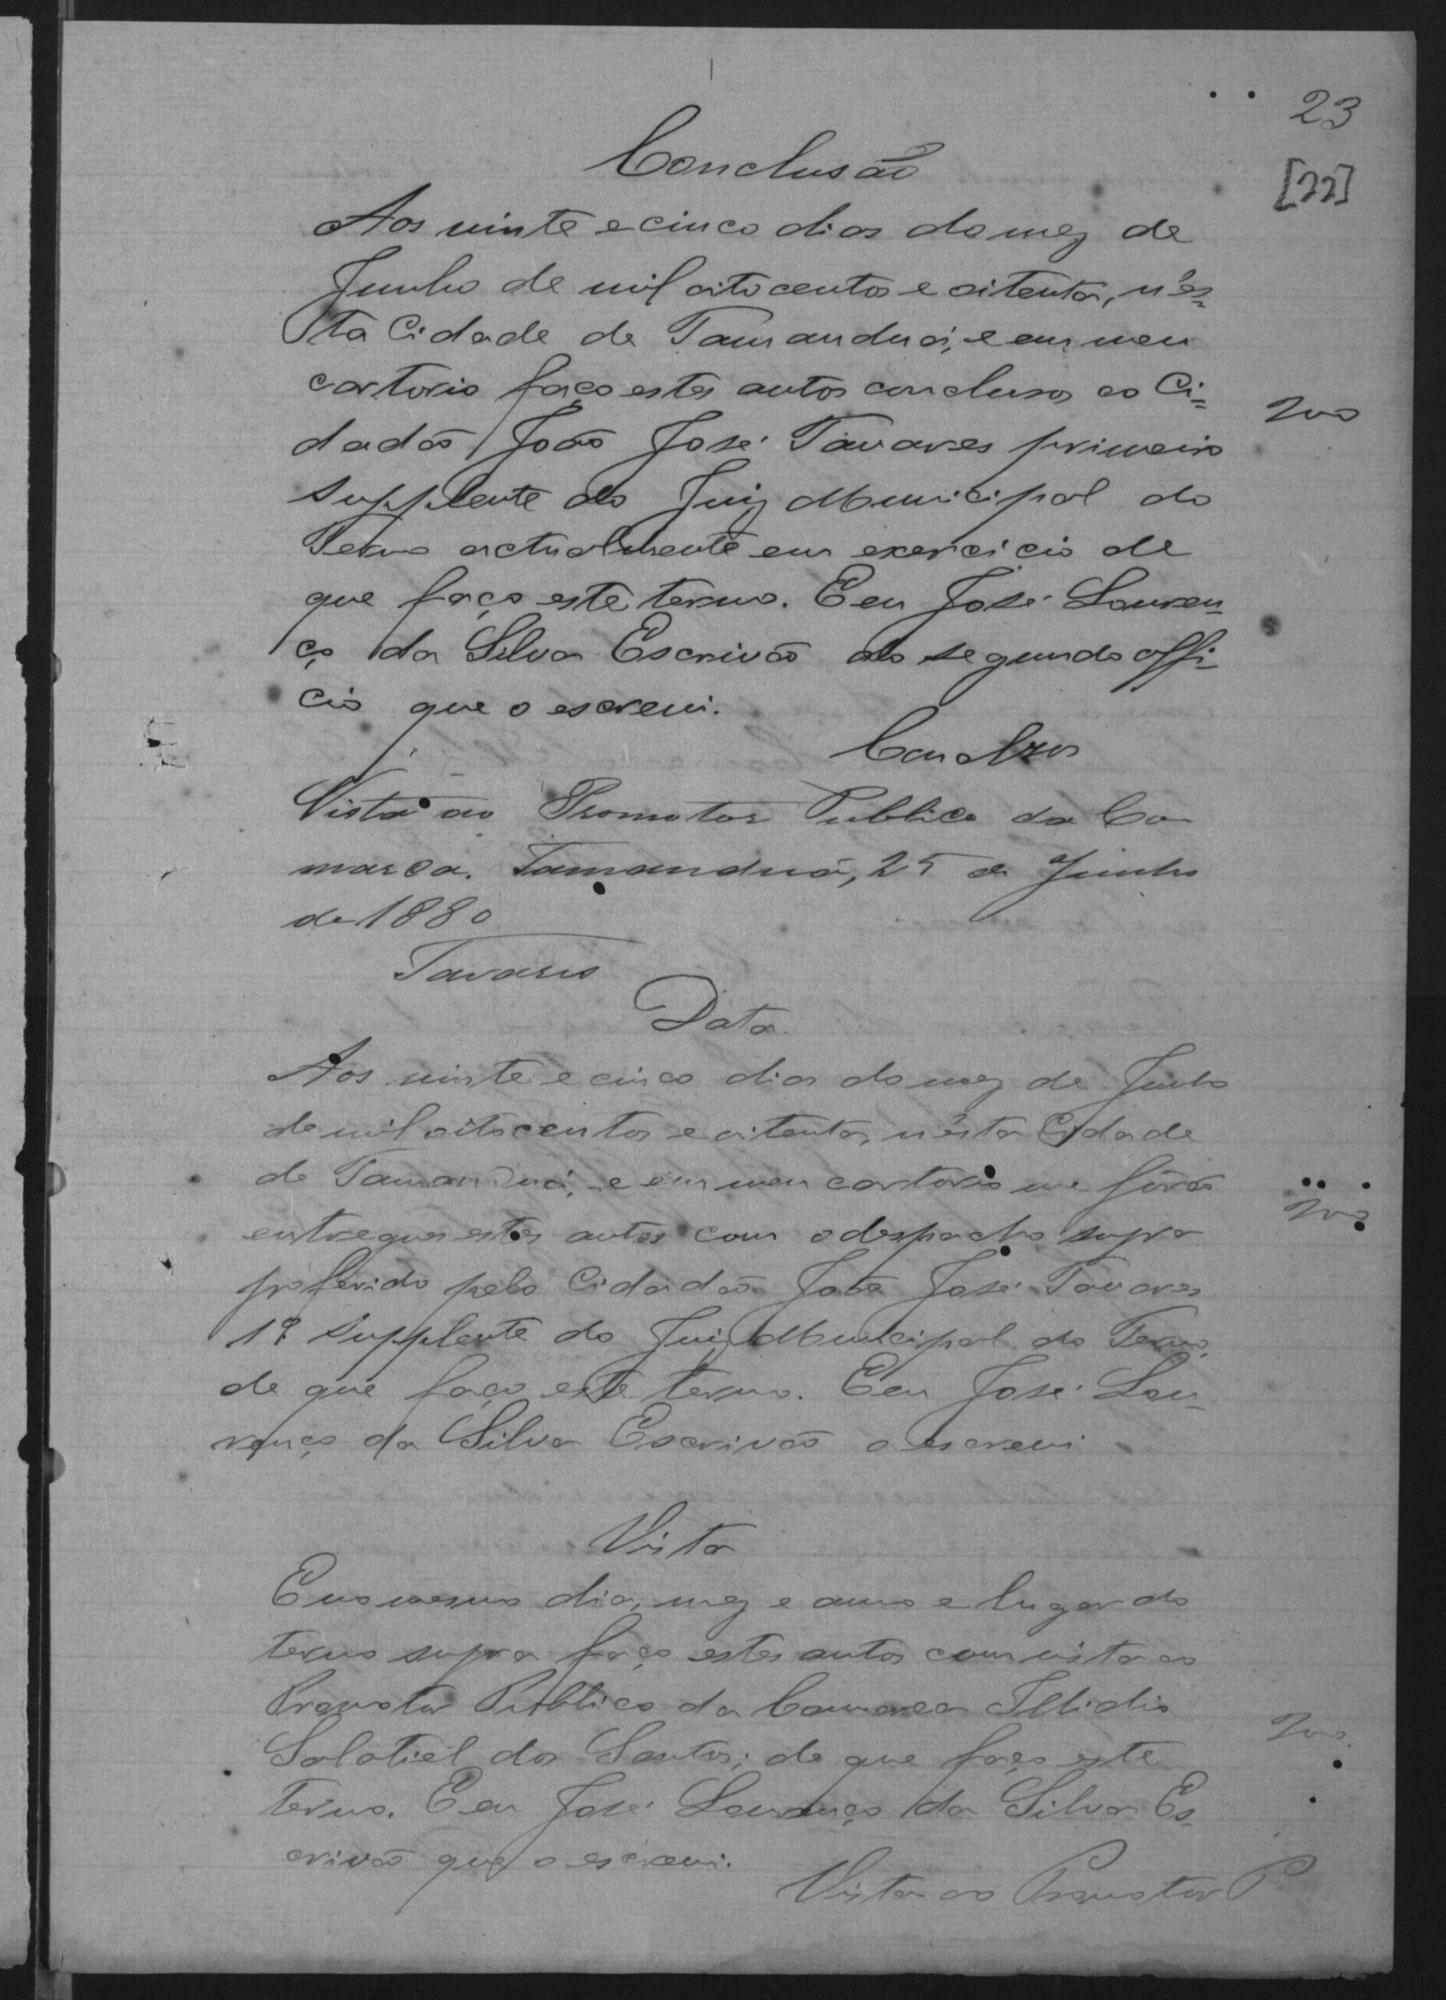 23
[22]
Conclusão
Aos vinte e cinco dias do mez de
Junho de mil oito centos e oitenta, n'es=
ta Cidade de Tamanduá, e em meu
cartorio faço estes autos conclusos ao Ci=
dadão João José Tavares primeiro
supplente do Juiz Municipal do
Termo actualmente em exercicio de
que faço este termo. E eu José Louren=
ço da Silva Escrivão do segundo offi=
cio que o escrevi.
200
Conclzos
Vista ao Promotor Publico da Co
marca. Tamanduá, 25 de Junho
de 1880
Tavares
Data
Aos vinte e cinco dias do mez de Junho
de mil oitocentos e oitenta, n'ésta Cidade
de Tamanduá, e em meu cartorio me fôrão
entregues estes autos com o despacho supra
proferido pelo Cidadão João José Tavares
1º Supplente do Juiz Municipal do Termo,
de que faço este termo. E eu José Lou=
renço da Silva Escrivão o escrevi
200
Vista
E no mesmo dia, mez e anno e lugar do
termo supra faço estes autos com vista ao
Promotor Publico da Comarca Illidio
Salatiel dos Santos; de que faço este
termo. E eu José Lourenço da Silva Es=
crivão que o escrevi.
200
Vista ao Promotor P